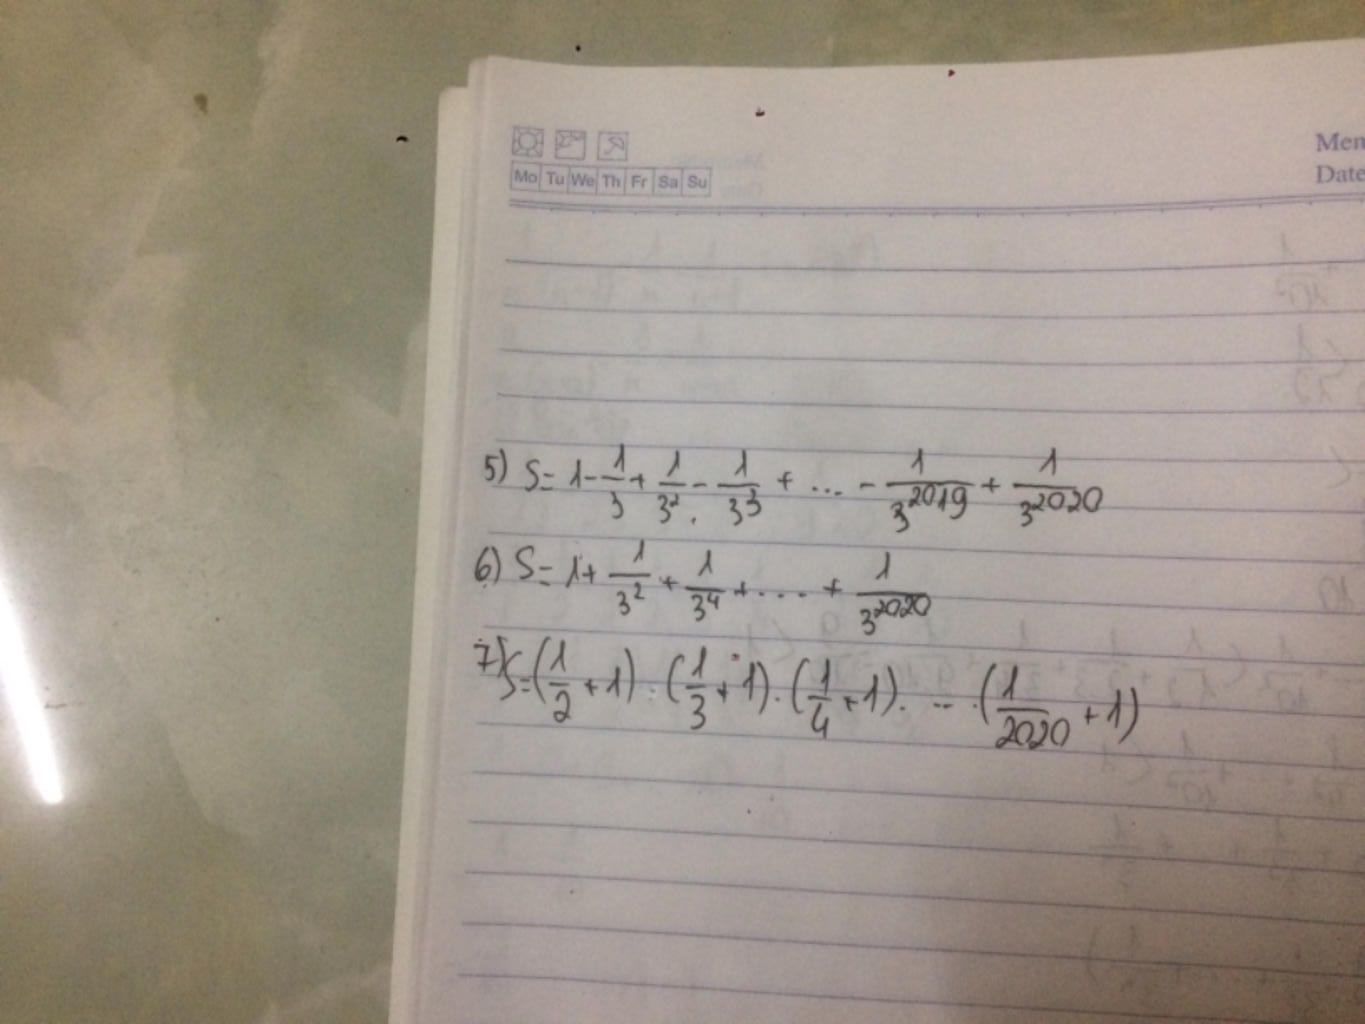 Mo Tu We Th Fr Sa Su
Date
5) S = 1 - 1/3 + 1/3² - 1/3³ + ... - 1/3²⁰¹⁹ + 1/3²⁰²⁰
6) S = 1 + 1/3² + 1/3⁴ + .... + 1/3²⁰²⁰
7) S = (1/2 + 1) . (1/3 + 1) . (1/4 + 1) . ... . (1/2020 + 1)